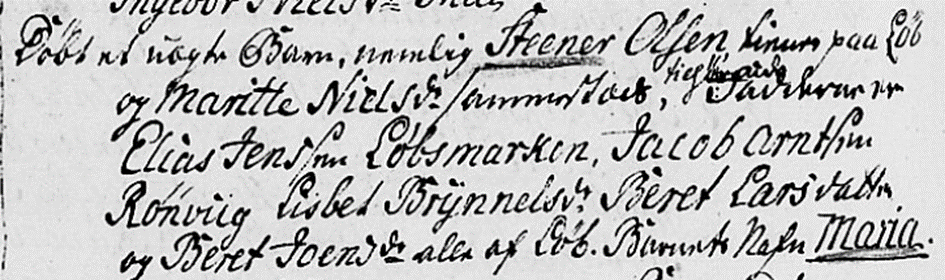 Ingebor Nielsdr
Døbt et uægte Barn, nemlig Steener Olsen tiener paa Løb
og Maritte Nielsdr sammestæds, Fadderne er
Elias Jenssen Løbsmarken, Jacob Arntsen
Rønviig Lisbet Brÿnnelsdr Beret Larsdatter
og Beret Joensdr alle af Løb. Barnets Nafn Maria.